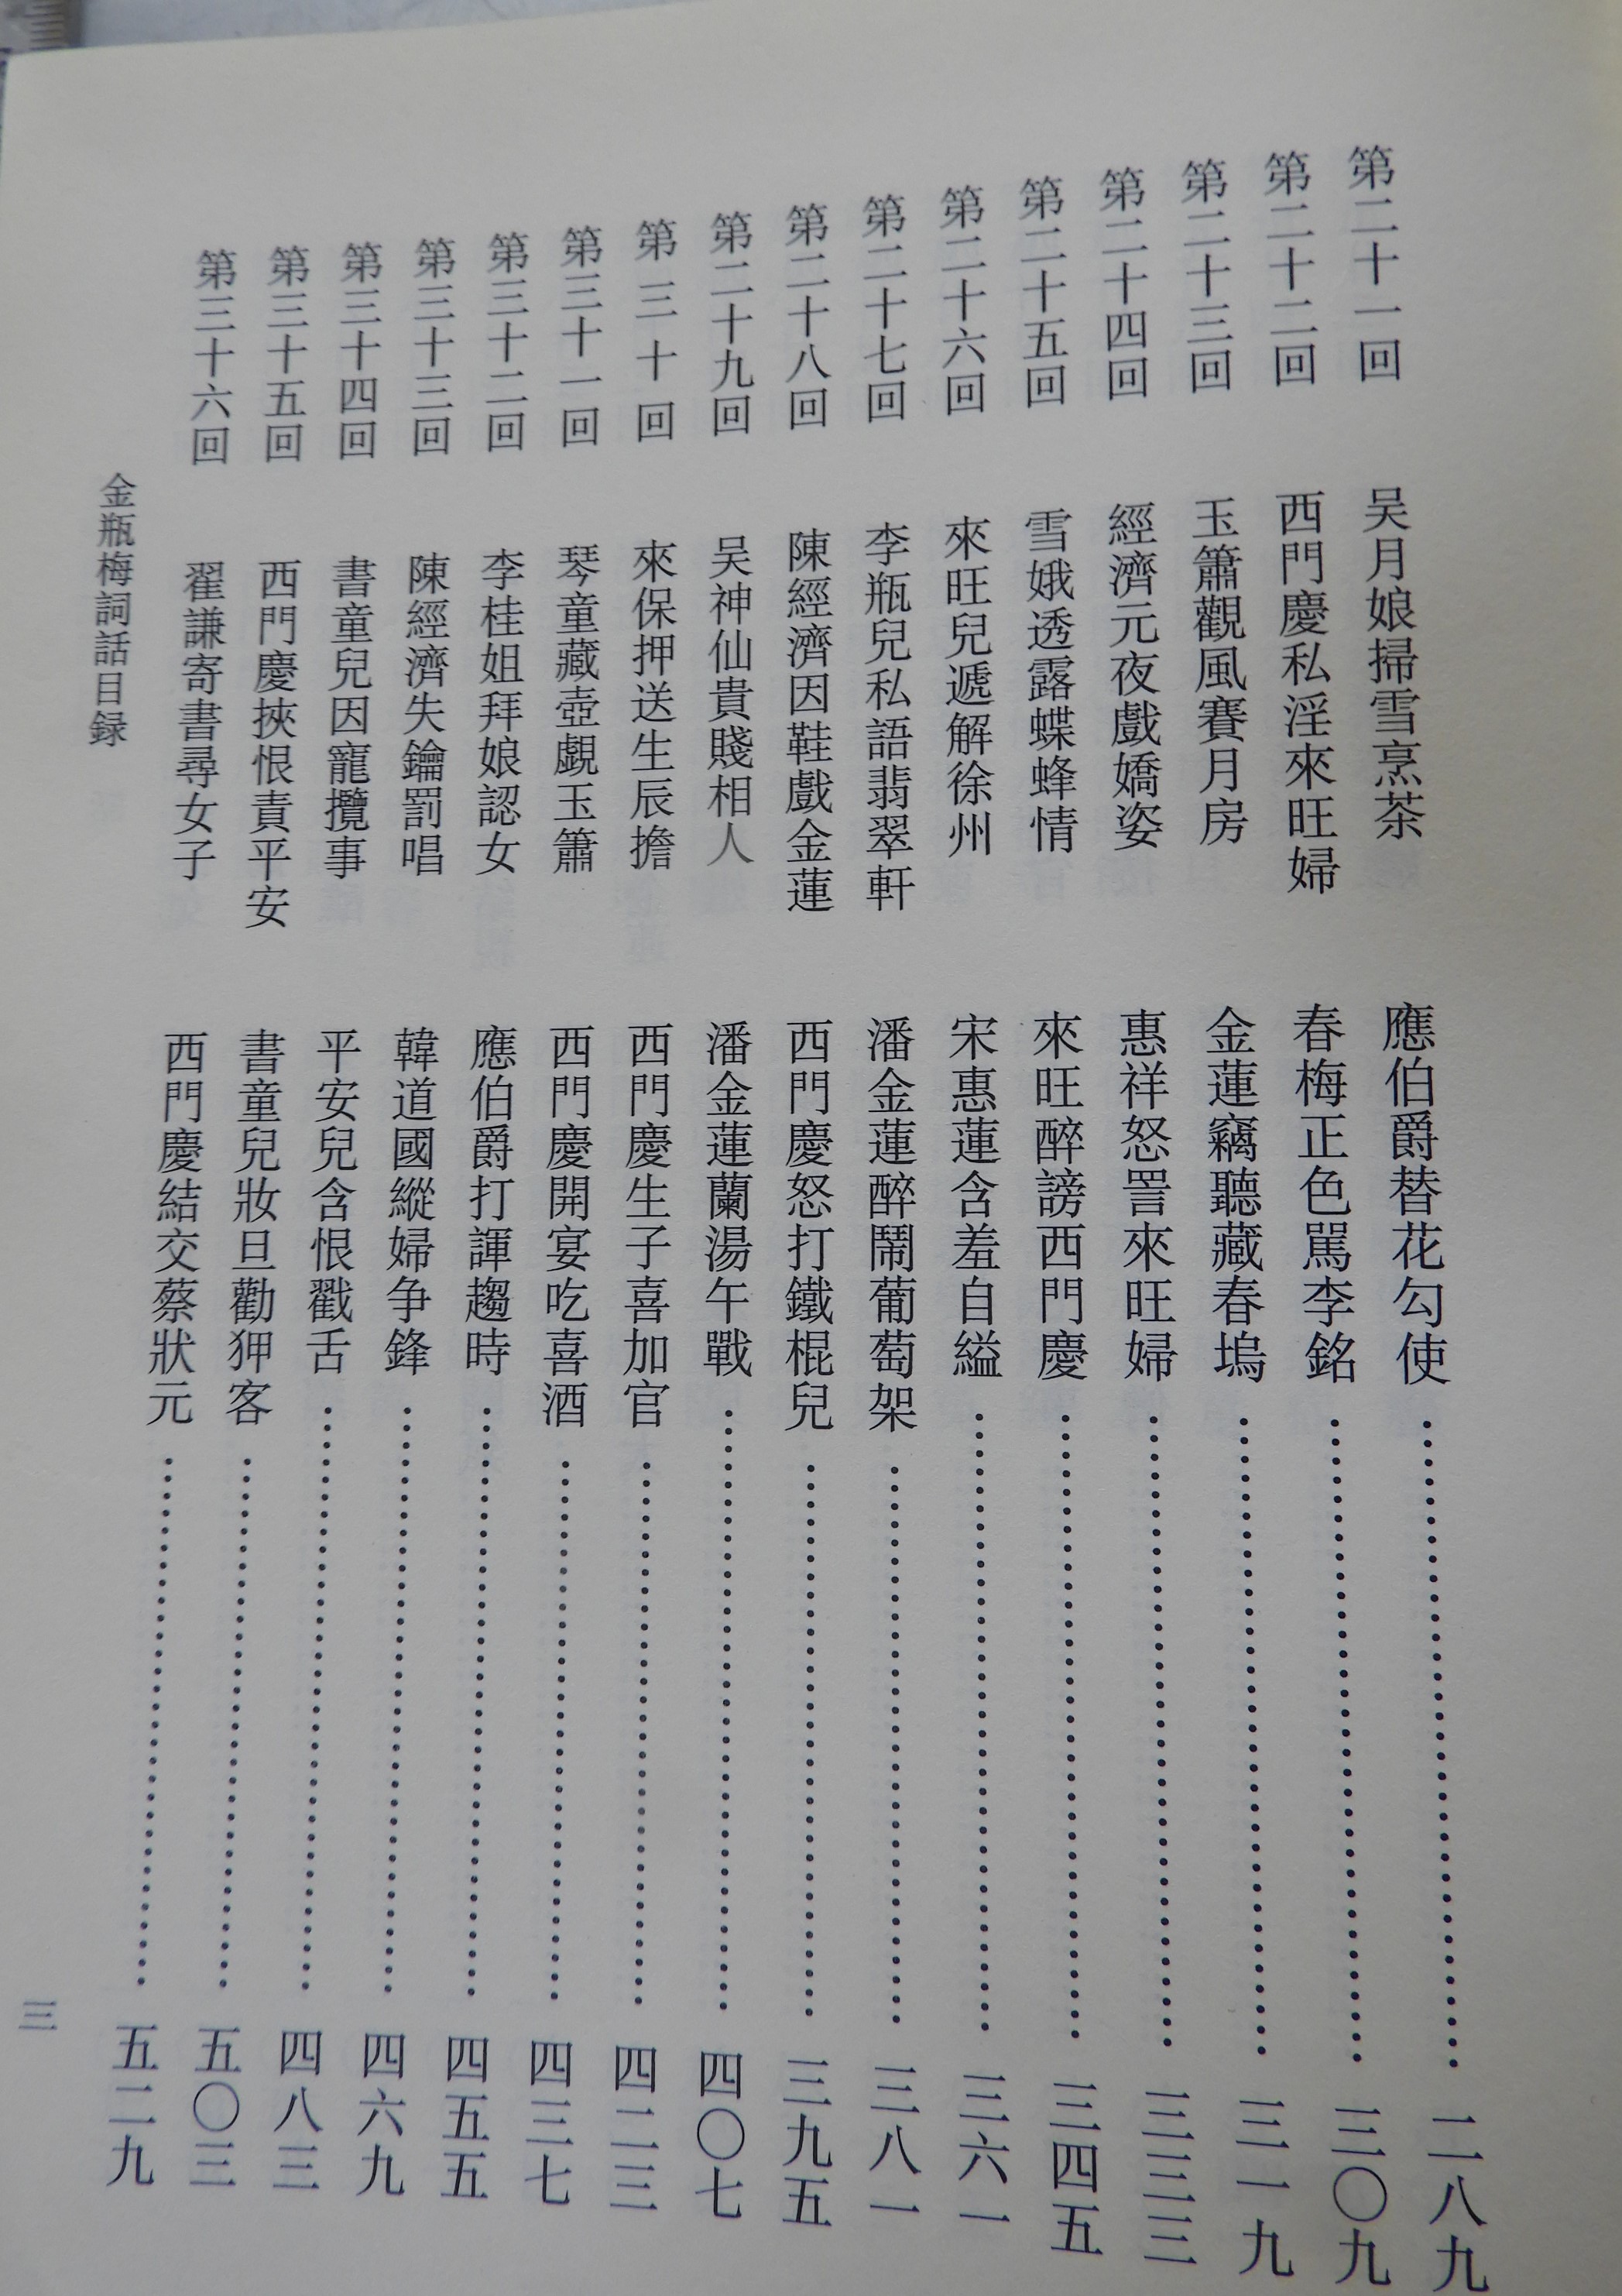 第二十一回 吴月娘掃雪烹茶 應伯爵替花勾使……二八九
第二十二回 西門慶私淫來旺婦 春梅正色駡李銘……三〇九
第二十三回 玉簫觀風賽月房 金蓮竊聽藏春塢……三一九
第二十四回 經濟元夜戲嬌姿 惠祥怒詈來旺婦……三三三
第二十五回 雪娥透露蝶蜂情 來旺醉謗西門慶……三四五
第二十六回 來旺兒遞解徐州 宋惠蓮含羞自縊……三六一
第二十七回 李瓶兒私語翡翠軒 潘金蓮醉鬧葡萄架……三八一
第二十八回 陳經濟因鞋戲金蓮 西門慶怒打鐵棍兒……三九五
第二十九回 吴神仙貴賤相人 潘金蓮蘭湯午戰……四〇七
第三十回 來保押送生辰擔 西門慶生子喜加官……四二三
第三十一回 琴童藏壺覷玉簫 西門慶開宴吃喜酒……四三七
第三十二回 李桂姐拜娘認女 應伯爵打諢趨時……四五五
第三十三回 陳經濟失鑰罰唱 韓道國縱婦争鋒……四六九
第三十四回 書童兒因寵攬事 平安兒含恨戳舌……四八三
第三十五回 西門慶挾恨責平安 書童兒妝旦勸狎客……五〇三
第三十六回 翟謙寄書尋女子 西門慶結交蔡狀元……五二九
金瓶梅詞話目録
三